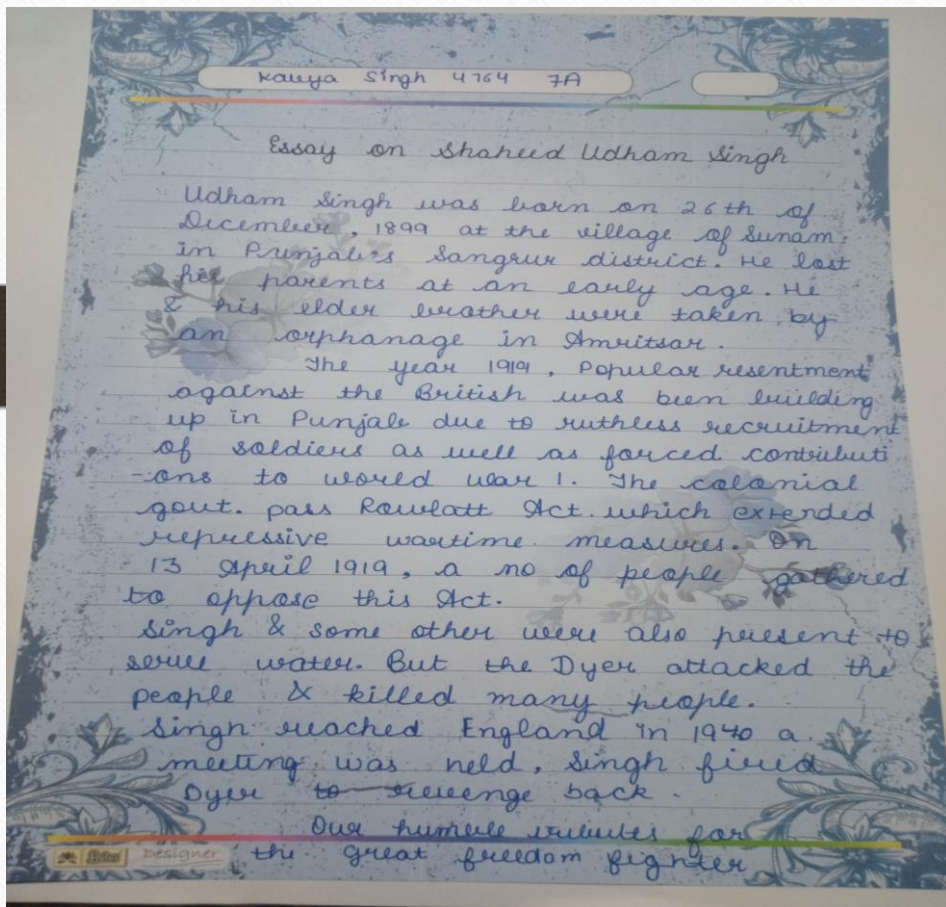 Kavya Singh 4764 7A
Essay on Shaheed Udham Singh
Udham Singh was born on 26th of
December, 1899 at the village of Sunam
in Punjab's Sangrur district. He lost
his parents at an early age. He
& his elder brother were taken by
an orphanage in Amritsar.
The year 1919, Popular resentment
against the British was been building
up in Punjab due to ruthless recruitment
of soldiers as well as forced contributi
-ons to world war 1. The colonial
govt. pass Rowlatt Act. which extended
repressive wartime measures. On
13 April 1919, a no of people gathered
to oppose this Act.
Singh & some other were also present to
serve water. But the Dyer attacked the
people & killed many people.
Singh reached England in 1940 a
meeting was held, Singh fired
Dyer to revenge back.
Our humble tributes for
Designer the great freedom fighter